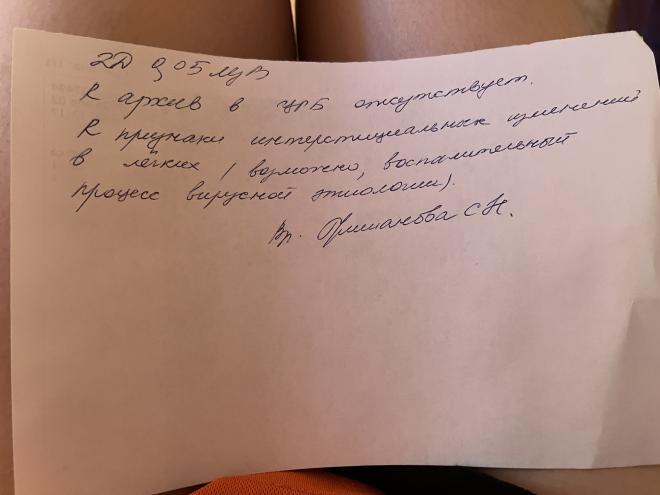 2D 0,05 мзв
R архив в ЦРБ отсутствует.
R признаки интерстициальных изменений
в лёгких (возможно, воспалительный
процесс вирусной этиологии).
Вр. С Н.